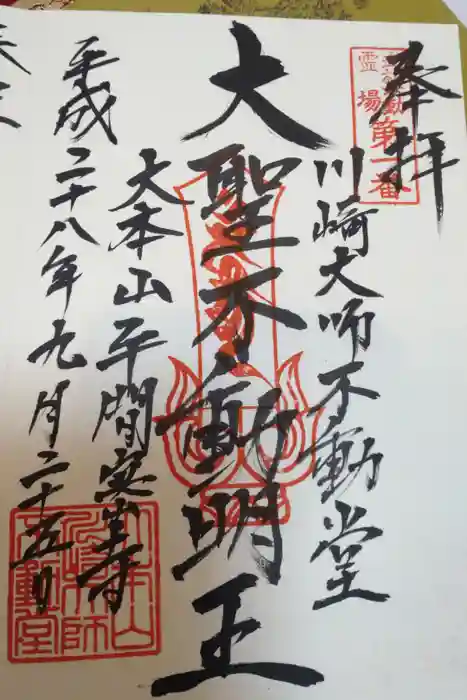 奉拝
川崎大师不動堂
大聖不動明王
大本山平間寺
平成二十八年九月二十五日
霊場
第一番